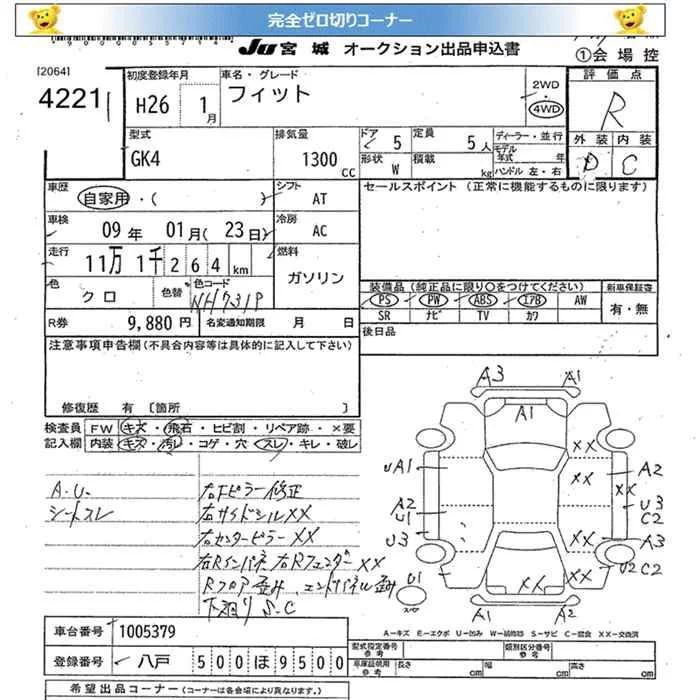 完全ゼロ切りコーナー
JU 宮城 オークション出品申込書
①会場控
[2064]
4221
初度登録年月
H26 1月
車名・グレード
フィット
2WD
・
4WD
評価点
R
型式
GK4
排気量
1300 CC
ドア 5
定員 5人
形状 W
積載 kg
ディーラー・並行
モデル年式 年
ハンドル 左・右
外装 内装
D C
車歴
自家用・( )
シフト
AT
セールスポイント (正常に機能するものに限ります)
車検
09年 01月(23日)
冷房
AC
走行
11万 1千 2 6 4 km
燃料
ガソリン
色
クロ
色替
色コード
NH731P
装備品 (純正品に限り○をつけてください)
新車保証書
PS PW ABS エアB AW
SR ナビ TV カワ
有・無
R券 9,880円
名変通知期限 月 日
後日品
注意事項申告欄(不具合内容等は具体的に記入して下さい)
修復歴 有 〔箇所 〕
検査員記入欄
FW キズ・飛石・ヒビ割・リペア跡・×要
内装 キズ・汚レ・コゲ・穴・スレ・キレ・破レ
A.U.
シートスレ
右Fピラー修正
右サイドシルXX
右センターピラーXX
右Rインパネ 右RフェンダーXX
Rフロア歪み、エンドパネル歪み
下廻り S.C
A3
A1
A1
XX
UA1
XX
A2
XX
A2
U1
U3
C2
U3
XX
A3
U1
スペヤ
XX
XX
U2 C2
A1
A2
A−キズ E−エクボ U−凹み W−補修跡 S−サビ C−腐食 XX−交換済
車台番号 1005379
登録番号 八戸 500 ほ 9500
型式指定番号
参考
類別区分番号
参考
車庫証明用
参考
長さ cm
幅 cm
高さ cm
希望出品コーナー (コーナーは各会場により異なります。)